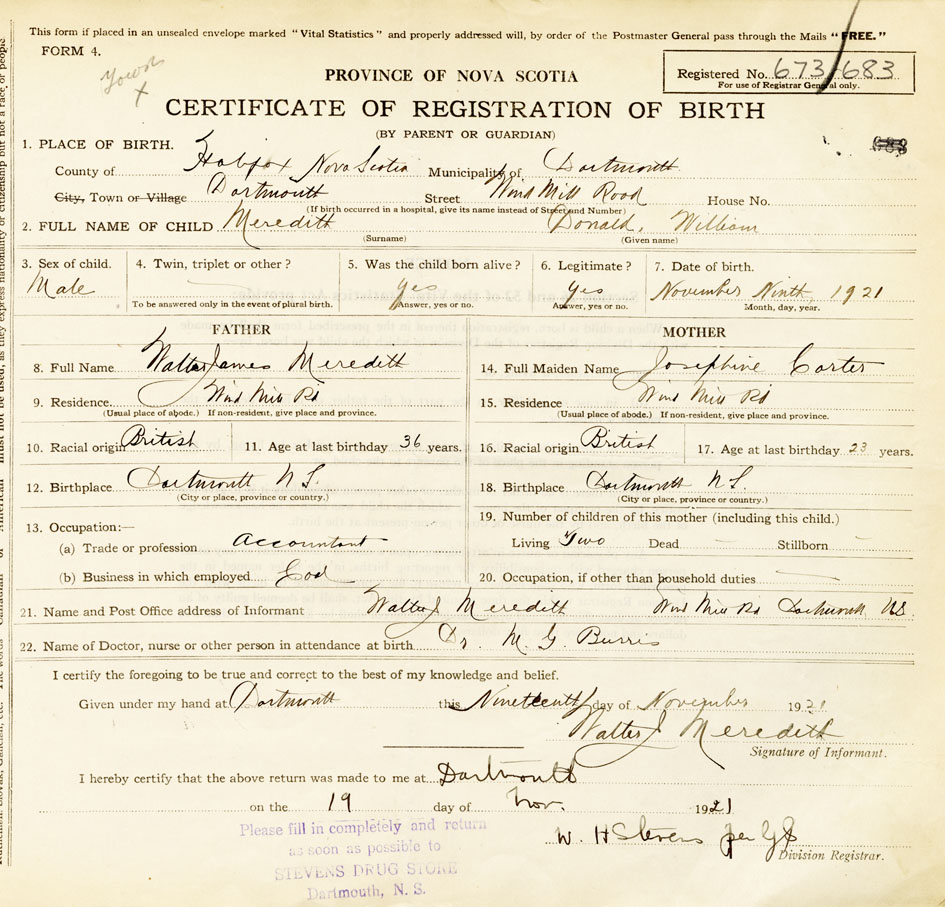 This form if placed in an unsealed envelope marked "Vital Statistics" and properly addressed will, by order of the Postmaster General pass through the Mails "FREE."
FORM 4.
PROVINCE OF NOVA SCOTIA
Registered No. 673/683
For use of Registrar General only.
CERTIFICATE OF REGISTRATION OF BIRTH
(BY PARENT OR GUARDIAN)
1. PLACE OF BIRTH.
County of Halifax Nova Scotia Municipality of Dartmouth
City, Town or Village Dartmouth Street Wind Mill Road House No.
(If birth occurred in a hospital, give its name instead of Street and Number)
2. FULL NAME OF CHILD Meredith Donald, William
(Surname) (Given name)
3. Sex of child. 4. Twin, triplet or other? 5. Was the child born alive? 6. Legitimate? 7. Date of birth.
Male Yes Yes November Ninth, 1921
To be answered only in the event of plural birth. Answer, yes or no. Answer, yes or no. Month, day, year.
FATHER MOTHER
8. Full Name Walter James Meredith 14. Full Maiden Name Josephine Carter
9. Residence Wind Mill Rd 15. Residence Wind Mill Rd
(Usual place of abode.) If non-resident, give place and province. (Usual place of abode.) If non-resident, give place and province.
10. Racial origin British 11. Age at last birthday 36 years. 16. Racial origin British 17. Age at last birthday 23 years.
12. Birthplace Dartmouth N S. 18. Birthplace Dartmouth N S.
(City or place, province or country.) (City or place, province or country.)
13. Occupation:— 19. Number of children of this mother (including this child.)
(a) Trade or profession Accountant Living Two Dead — Stillborn —
(b) Business in which employed 20. Occupation, if other than household duties —
21. Name and Post Office address of Informant Walter J Meredith Wind Mill Rd Dartmouth NS.
22. Name of Doctor, nurse or other person in attendance at birth Dr. M. G. Burris
I certify the foregoing to be true and correct to the best of my knowledge and belief.
Given under my hand at Dartmouth this Nineteenth day of November 1921
Walter J Meredith
Signature of Informant.
I hereby certify that the above return was made to me at Dartmouth
on the 19 day of Nov. 1921
W. H Stevens per
Division Registrar.
Please fill in completely and return
as soon as possible to
STEVENS DRUG STORE
Dartmouth, N. S.